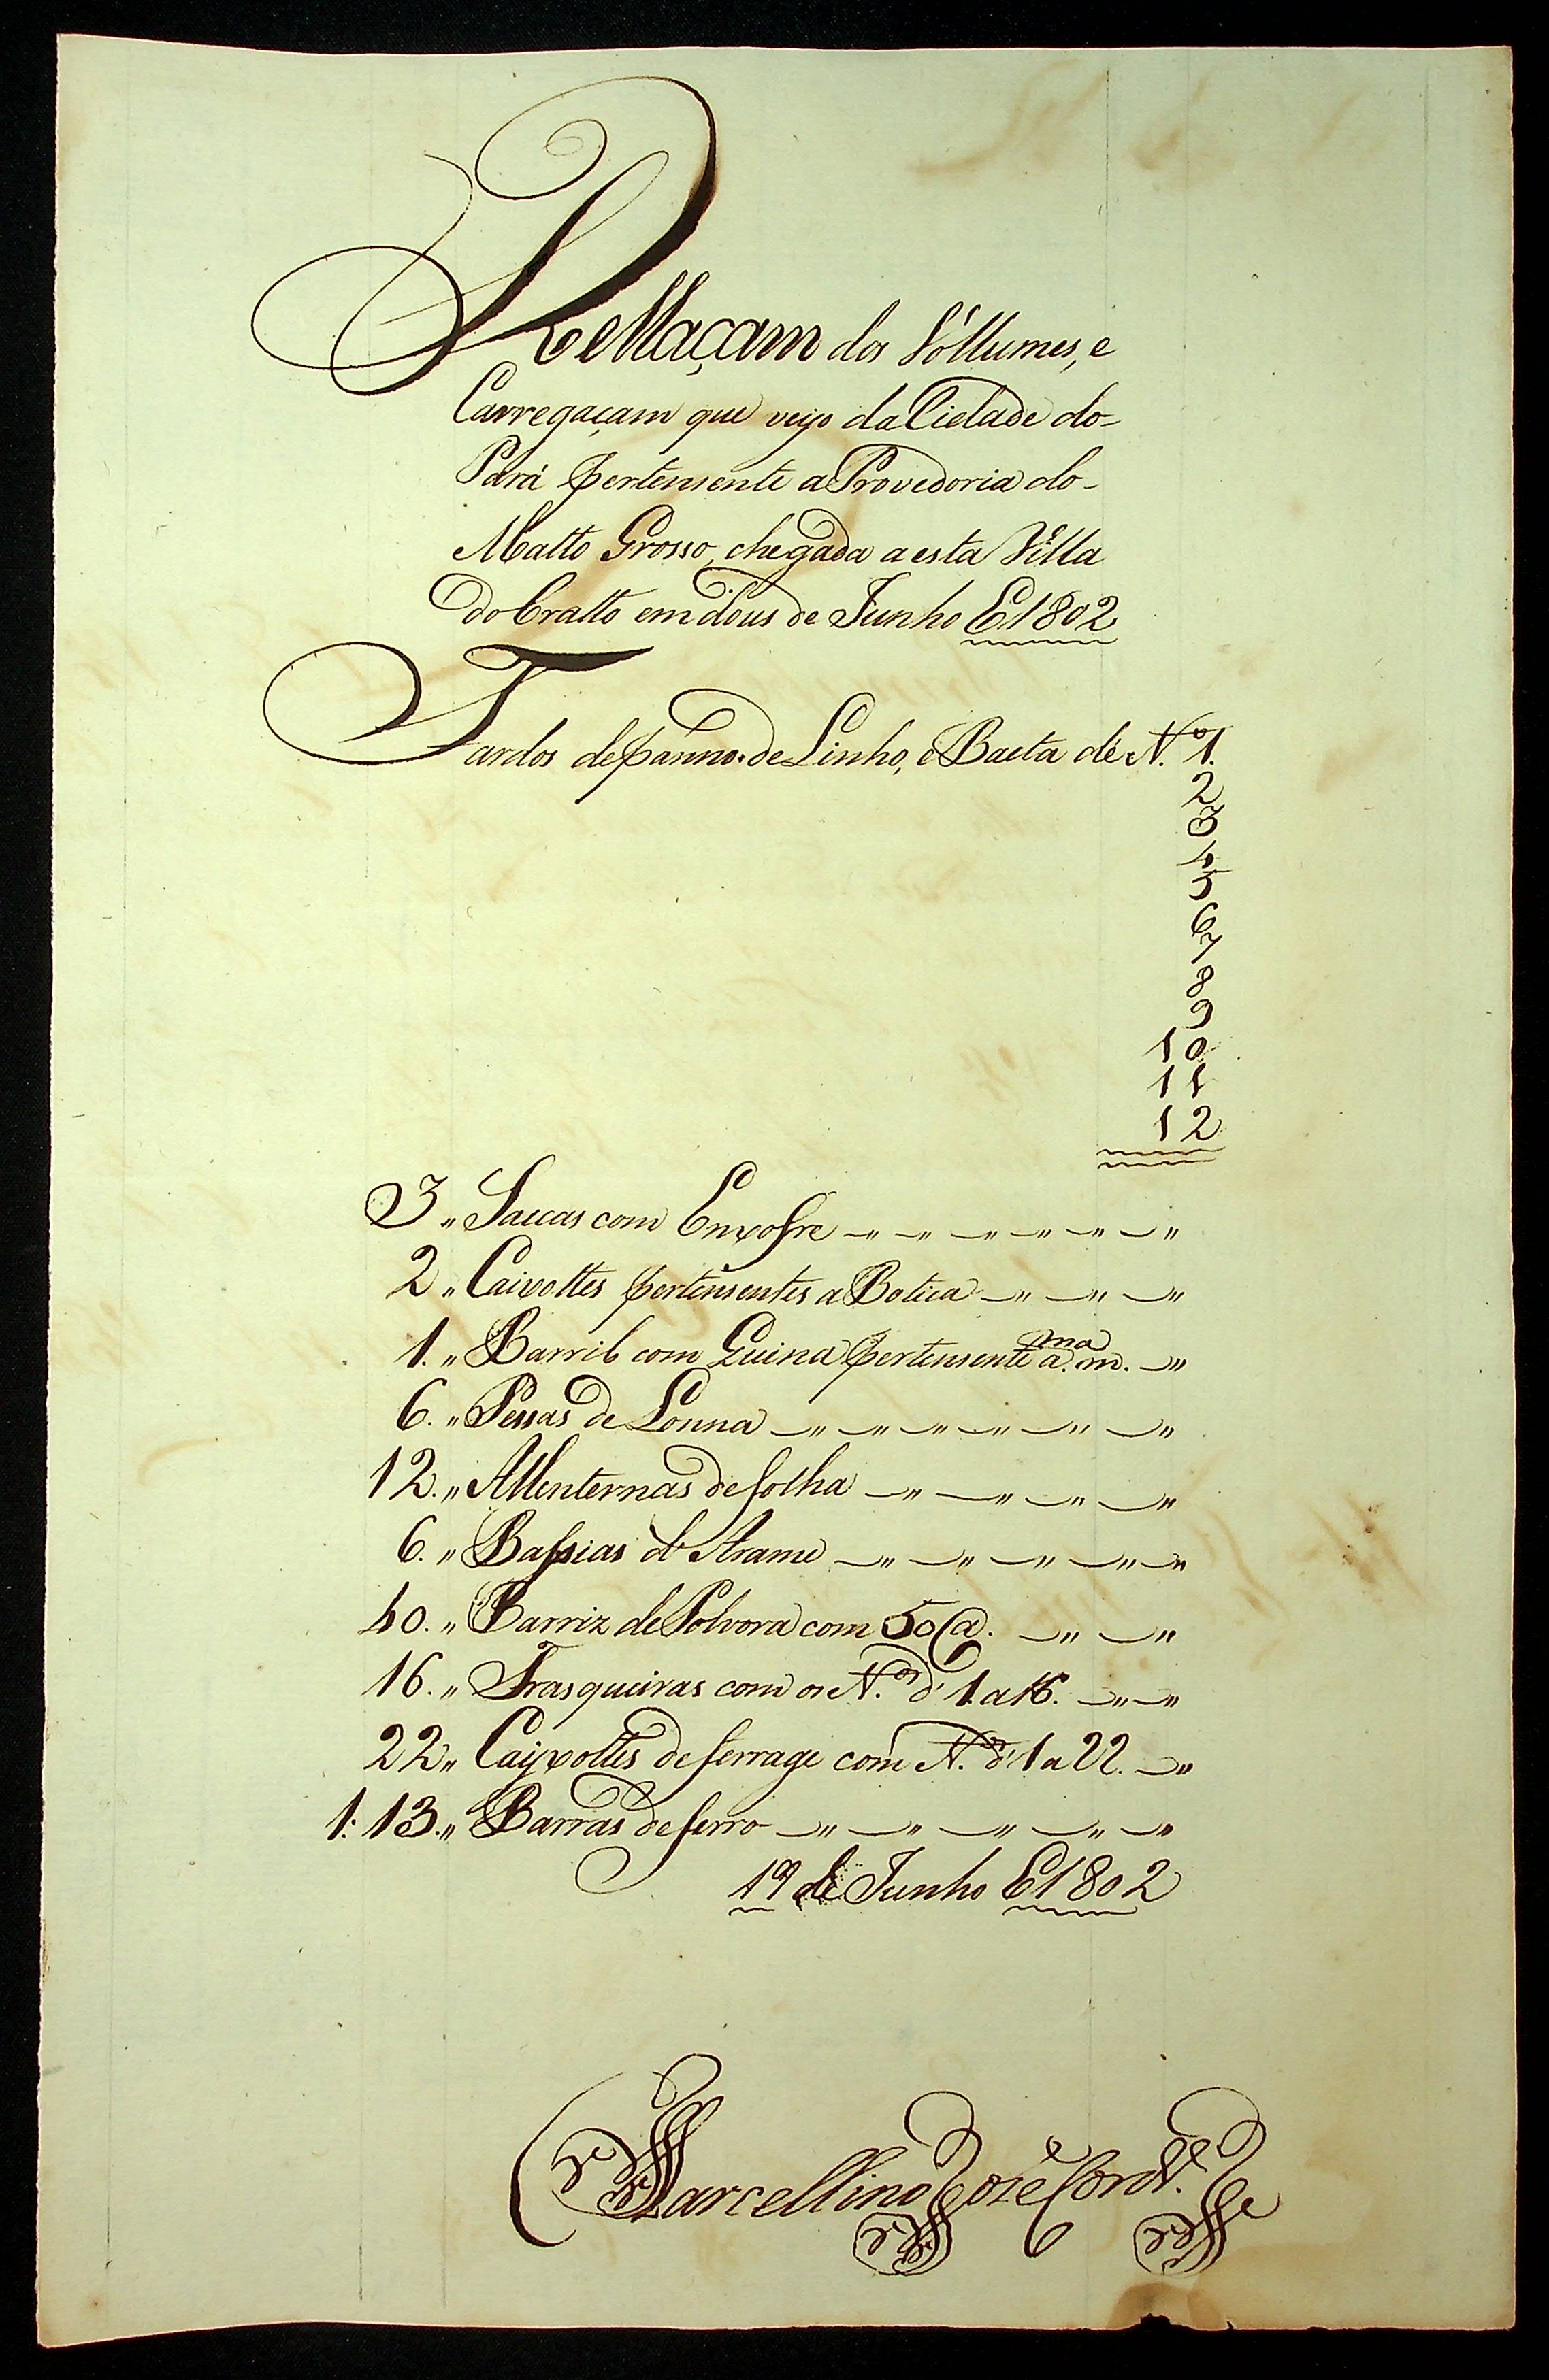 Rellaçam dos Vóllumes, e
Carregaçam que veyo da Cidade do-
Pará pertensente a Provedoria do-
Matto Grosso, chegada a esta Villa
do Cratto em dous de Junho E1802
Fardos de panno de Linho, e Baeta de N.º 1.
2
3
4
5
6
7
8
9
10
11
12
3,, Saccas com Enxofre
2,, Caixottes pertensentes a Botica
1.,, Barril com Quina pertensente a m.ma
6.,, Pessas de Lonna
12.,, Allenternas de folha
6.,, Bassias d'Arame
40.,, Barriz de Polvora com 50@.
16.,, Frasqueiras com os N.os d' 1 a 16.
22,, Cayxottes de ferrage com N.os d' 1 a 22.
1:13.,, Barras de ferro
19 de Junho E1802
Marcellino José Cord.